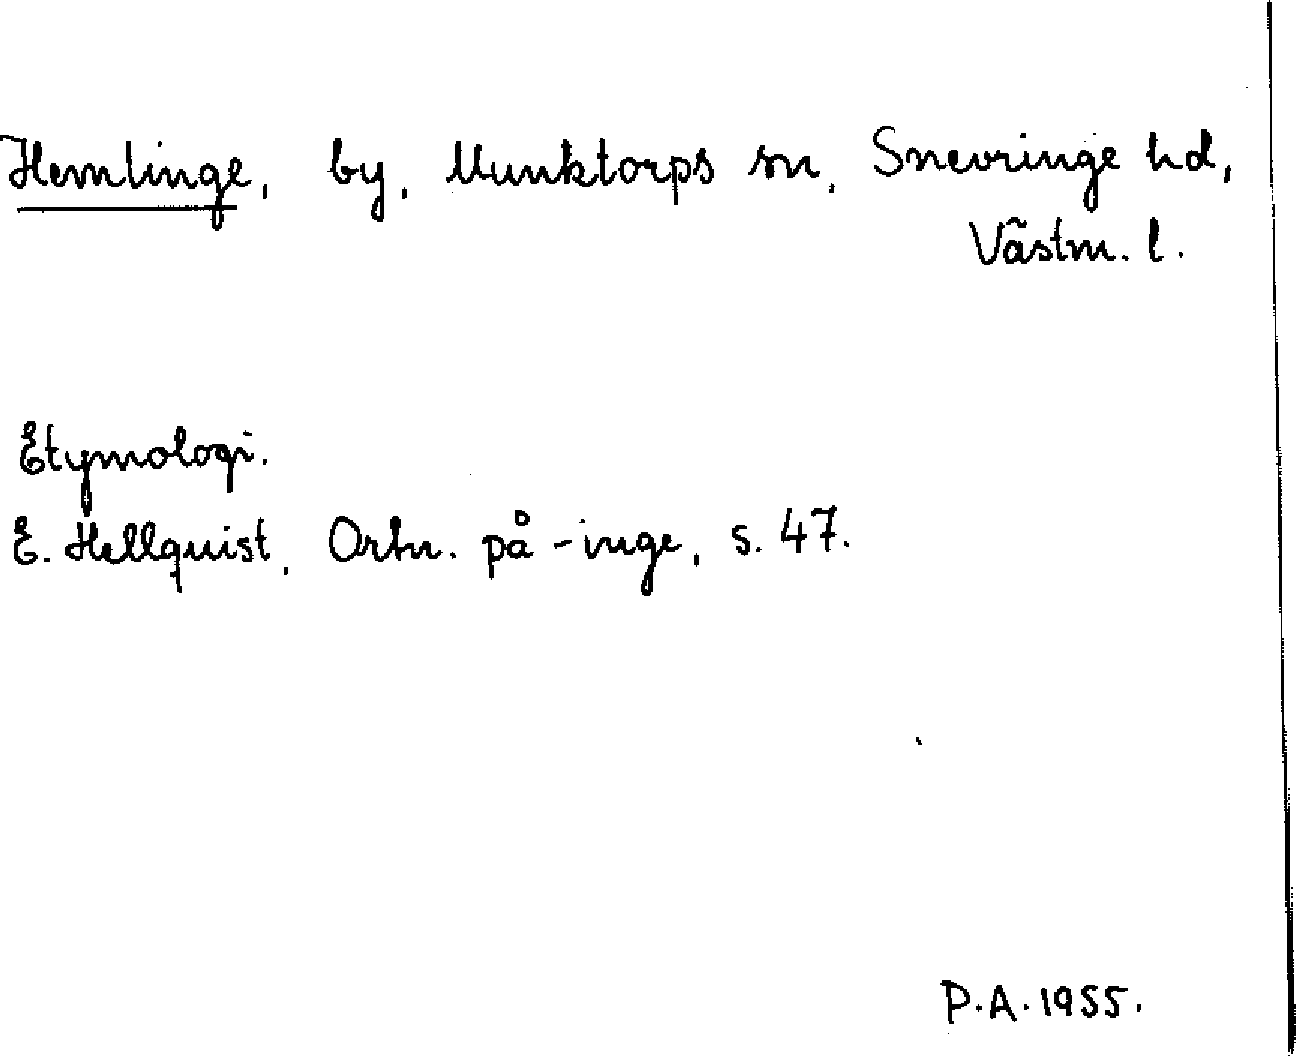 Hemlinge, by, Munktorps sn, Snevringe hd,
Västm. l.
Etymologi.
E. Hellquist, Ortn. på -inge, s. 47.
P.A. 1955.